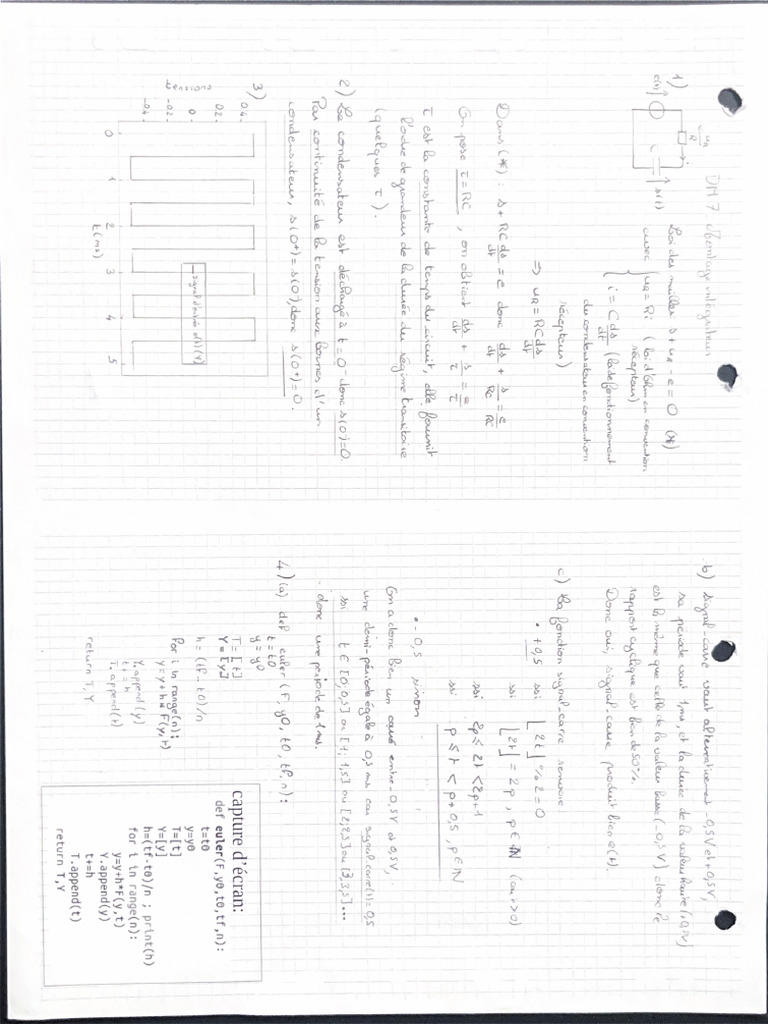 DM 7 : Montage intégrateur
1)
e(t)
uR
R
i
C
s(t)
Loi des mailles s + uR - e = 0 (*)
avec { uR = Ri (loi d'Ohm en convention
récepteur)
i = C ds/dt (loi de fonctionnement
du condensateur en convention
récepteur)
=> uR = RC ds/dt
Dans (*) : s + RC ds/dt = e donc ds/dt + s/RC = e/RC
On pose τ = RC, on obtient ds/dt + s/τ = e/τ
τ est la constante de temps du circuit, elle fournit
l'ordre de grandeur de la durée du régime transitoire
(quelques τ).
2) Le condensateur est déchargé à t = 0⁻ donc s(0⁻) = 0.
Par continuité de la tension aux bornes d'un
condensateur, s(0⁺) = s(0⁻), donc s(0⁺) = 0.
3)
tensions
0.4
0.2
0
-0.2
-0.4
0 1 2 3 4 5
t (ms)
signal d'entrée e(t) (V)
b) signal-carre vaut alternativement -0,5V et +0,5V,
sa période vaut 1ms, et la durée de la valeur haute (+0,5V)
est la même que celle de la valeur basse (-0,5V) donc le
rapport cyclique est bien de 50%.
Donc oui, signal-carre produit bien e(t).
c) La fonction signal-carre renvoie
• +0,5 ssi ⌊2t⌋ % 2 = 0
ssi ⌊2t⌋ = 2p, p ∈ IN (car t>0)
ssi 2p ≤ 2t < 2p+1
ssi p ≤ t < p + 0,5, p ∈ IN
• -0,5 sinon
On a donc bien un carré entre -0,5V et 0,5V,
une demi-période égale à 0,5 ms car signal-carre(t) = 0,5
ssi t ∈ [0;0,5[ ou [1;1,5[ ou [2;2,5[ ou [3;3,5[ ...
donc une période de 1 ms.
4) (a) def euler (F, y0, t0, tf, n):
t = t0
y = y0
T = [t]
Y = [y]
h = (tf - t0)/n
for i in range(n):
y = y + h * F(y,t)
Y.append(y)
t += h
T.append(t)
return T,Y
capture d'écran:
def euler(F,y0,t0,tf,n):
t=t0
y=y0
T=[t]
Y=[y]
h=(tf-t0)/n ; print(h)
for i in range(n):
y=y+h*F(y,t)
Y.append(y)
t+=h
T.append(t)
return T,Y